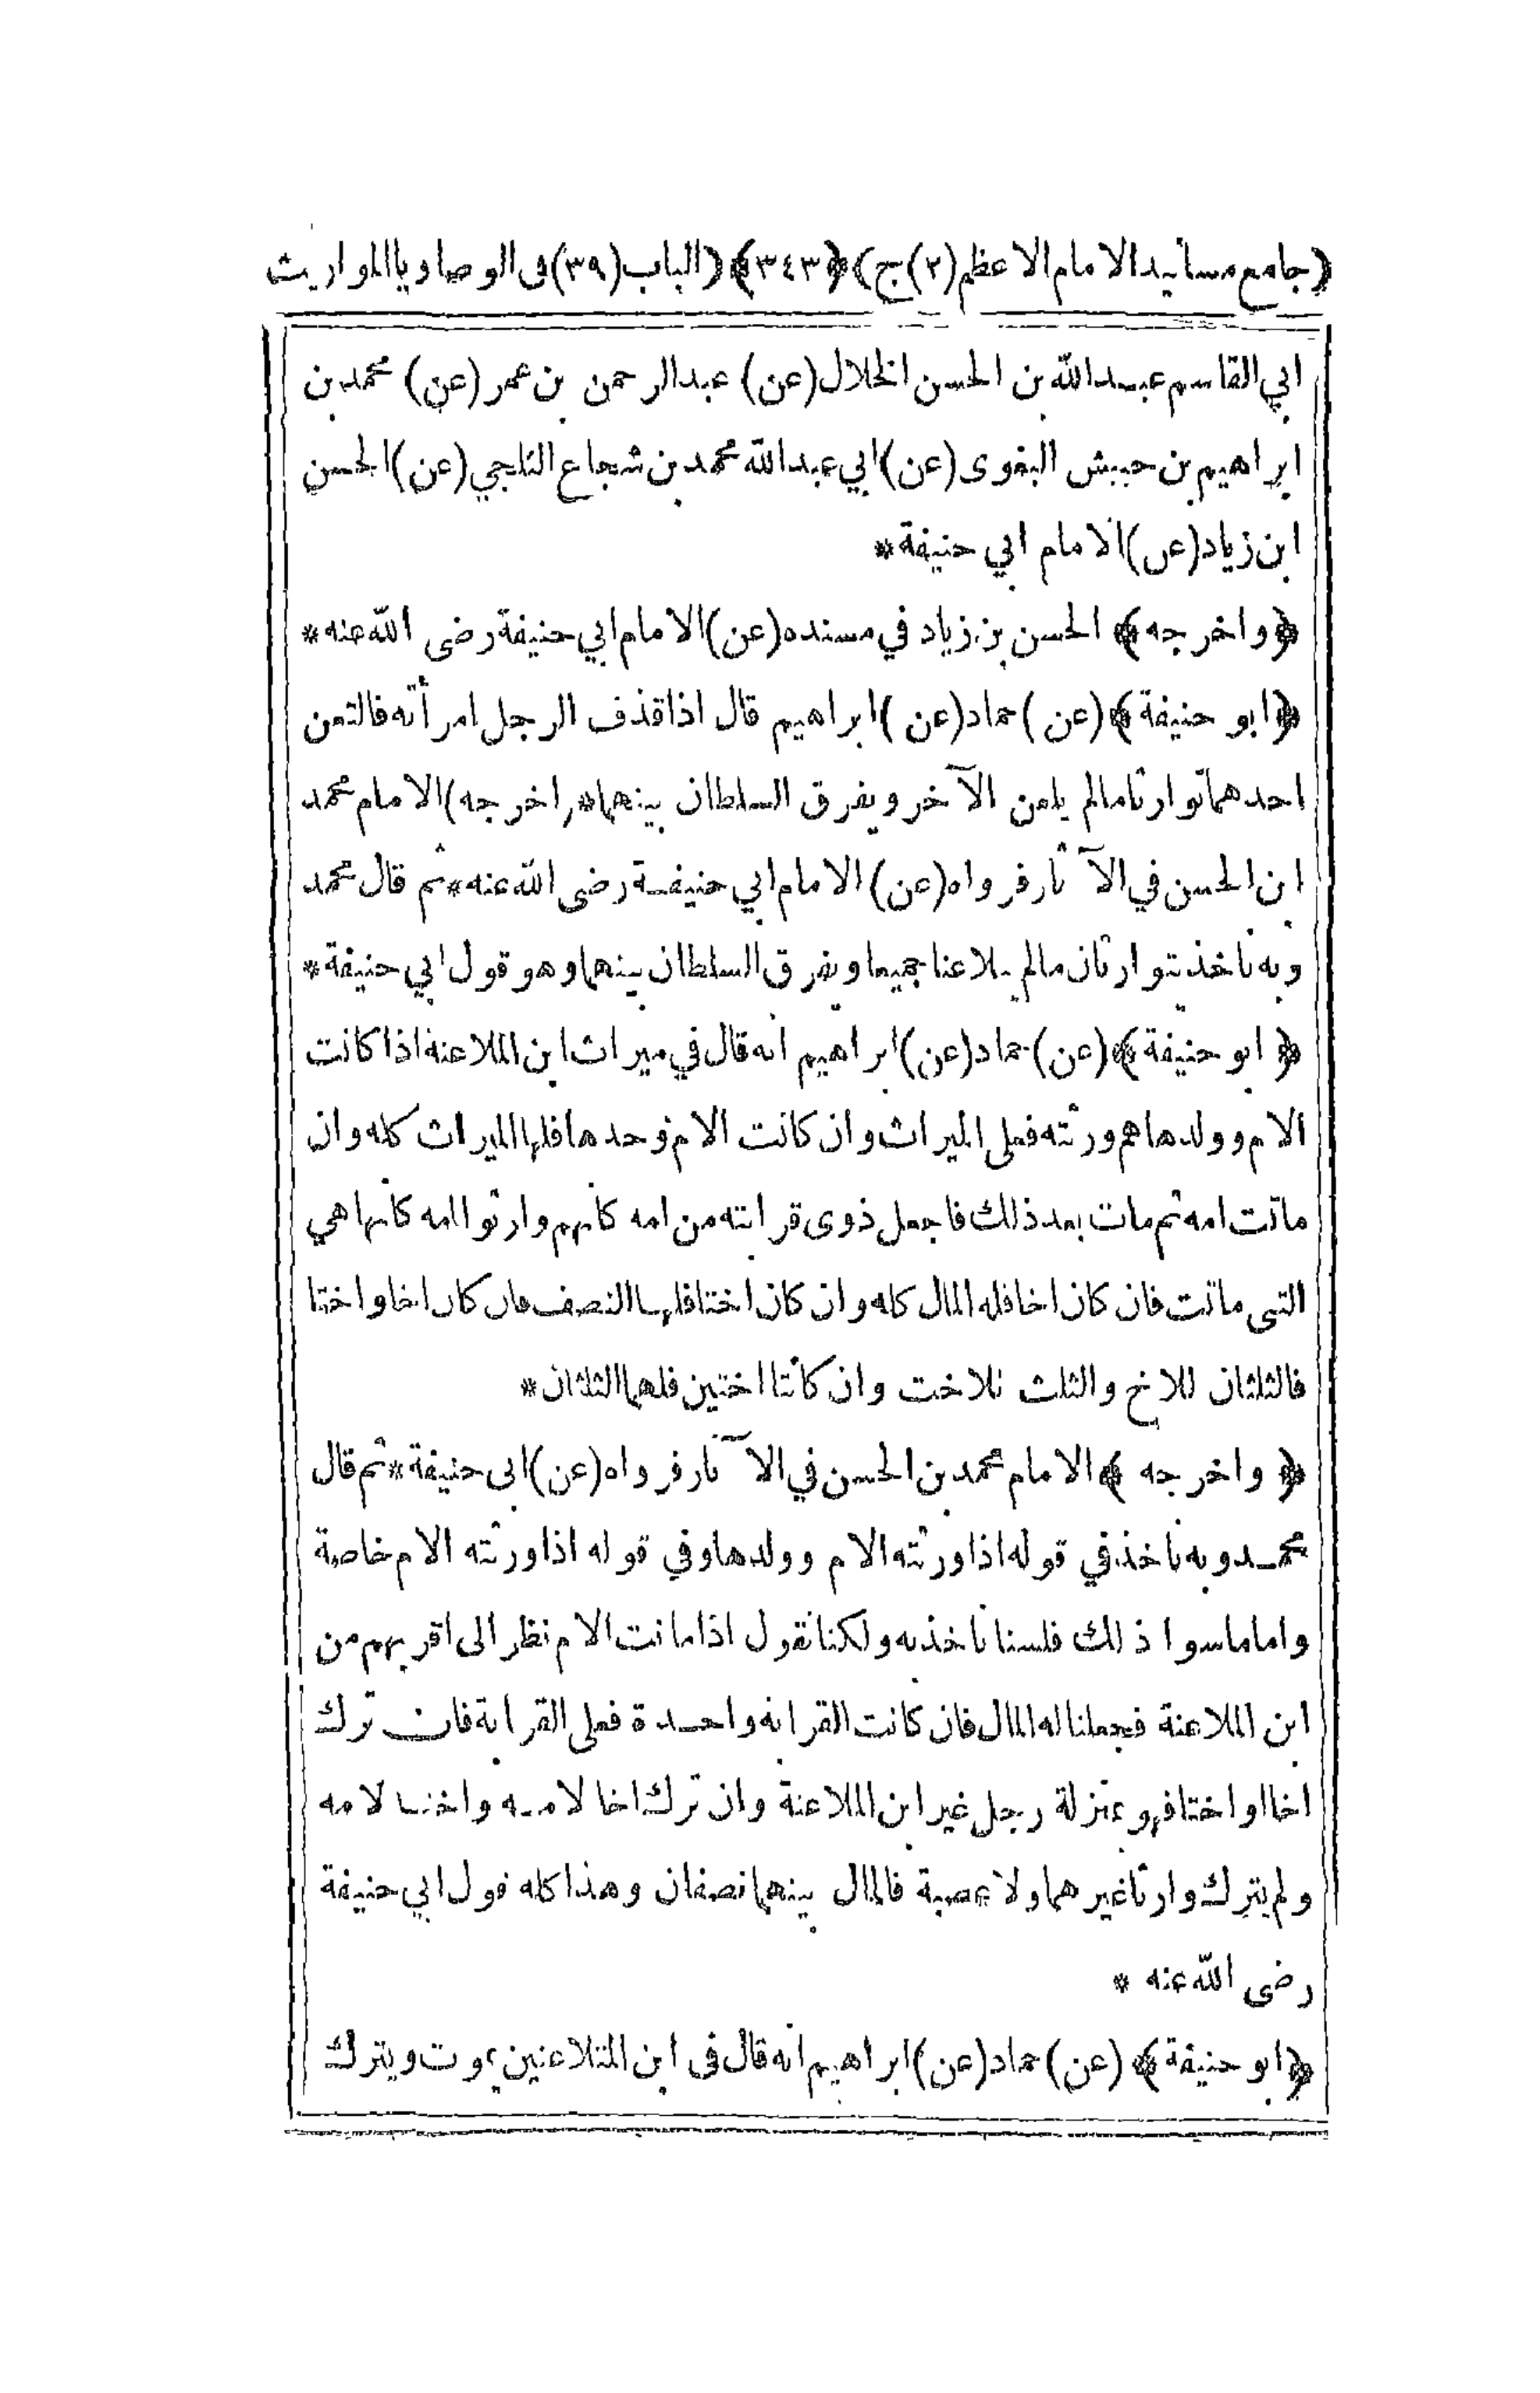 (جامع مسانيد الامام الاعظم (٢) ج) ﴿٣٤٣﴾ (الباب (٣٩) فى الوصايا والمواريث
ابي القاسم عبد الله بن الحسن الخلال (عن) عبد الرحمن بن عمر (عن) محمد بن
ابراهيم بن حبيش البغوى (عن) ابي عبد الله محمد بن شجاع الثلجي (عن) الحسن
ابن زياد (عن) الامام ابي حنيفة *
﴿واخرجه﴾ الحسن بن زياد في مسنده (عن) الامام ابي حنيفة رضى الله عنه *
﴿ابو حنيفة﴾ (عن) حماد (عن) ابراهيم قال اذا قذف الرجل امرأته فالتعن
احدهما توارثا مالم يلعن الآخر ويفرق السلطان بينهما * (اخرجه) الامام محمد
ابن الحسن في الآثار فرواه (عن) الامام ابي حنيفة رضى الله عنه * ثم قال محمد
وبه ناخذ يتوارثان مالم يلاعنا جميعا ويفرق السلطان بينهما وهو قول ابي حنيفة *
﴿ابو حنيفة﴾ (عن) حماد (عن) ابراهيم انه قال في ميراث ابن الملاعنة اذا كانت
الام وولدها هم ورثته فعلى الميراث وان كانت الام وحدها فلها الميراث كله وان
ماتت امه ثم مات بعد ذلك فاجعل ذوى قرابته من امه كانهم وارثوا امه كانها هي
التى ماتت فان كان اخا فله المال كله وان كان اختا فلها النصف فان كان اخا واختا
فالثلثان للاخ والثلث للاخت وان كانتا اختين فلهما الثلثان *
﴿واخرجه﴾ الامام محمد بن الحسن في الآثار فرواه (عن) ابى حنيفة * ثم قال
محمد وبه ناخذ في قوله اذا ورثته الام وولدها وفي قوله اذا ورثته الام خاصة
واما ما سوا ذلك فلسنا ناخذ به ولكنا نقول اذا ماتت الام نظر الى اقربهم من
ابن الملاعنة فجعلنا له المال فان كانت القرابة واحدة فعلى القرابة فان ترك
اخا او اختا فهو بمنزلة رجل غير ابن الملاعنة وان ترك اخا لامه واختا لامه
ولم يترك وارثا غيرهما ولا عصبة فالمال بينهما نصفان وهذا كله قول ابي حنيفة
رضى الله عنه *
﴿ابو حنيفة﴾ (عن) حماد (عن) ابراهيم انه قال فى ابن المتلاعنين يموت ويترك